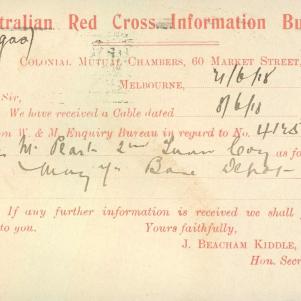 tralian Red Cross Information Bu
Colonial Mutual Chambers, 60 Market Street,
Melbourne, 21/6/18
Sir,
We have received a Cable dated 8/6/18
om W. & M. Enquiry Bureau in regard to No. 4125
M. 2nd Coy as fo
May Base Depot
If any further information is received we shall
to you. Yours faithfully,
J. BEACHAM KIDDLE,
Hon. Secr